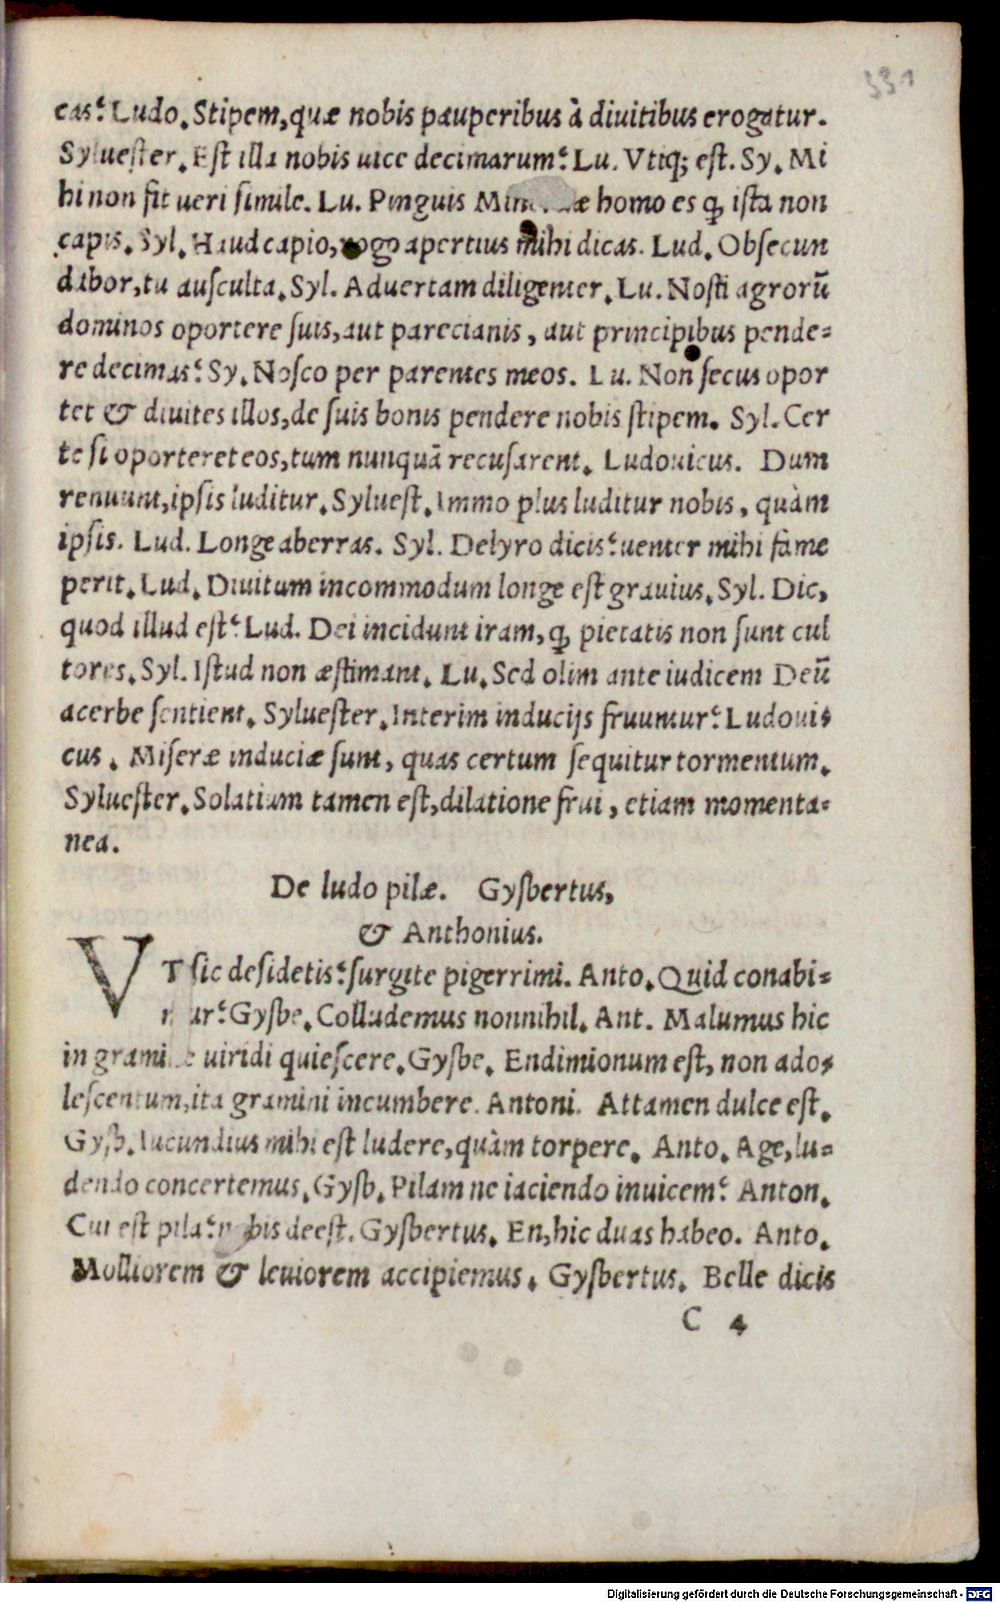 331
cas? Ludo. Stipem, quæ nobis pauperibus à diuitibus erogatur.
Syluester. Est illa nobis uice decimarum? Lu. Vtiq; est. Sy. Mi
hi non fit ueri simile. Lu. Pinguis homo es ꝙ ista non
capis. Syl. Haud capio, rogo apertius mihi dicas. Lud. Obsecun
dabor, tu ausculta. Syl. Aduertam diligenter. Lu. Nosti agrorū
dominos oportere suis, aut parecianis, aut principibus pende=
re decimas? Sy. Nosco per parentes meos. Lu. Non secus opor
tet & diuites illos, de suis bonis pendere nobis stipem. Syl. Cer
te si oporteret eos, tum nunquā recusarent. Ludouicus. Dum
renuunt, ipsis luditur. Syluest. Immo plus luditur nobis, quàm
ipsis. Lud. Longe aberras. Syl. Delyro dicis? uenter mihi fame
perit. Lud. Diuitum incommodum longe est grauius. Syl. Dic,
quod illud est? Lud. Dei incidunt iram, ꝙ pietatis non sunt cul
tores. Syl. Istud non æstimant. Lu. Sed olim ante iudicem Deū
acerbe sentient. Syluester. Interim inducijs fruuntur? Ludoui=
cus. Miseræ induciæ sunt, quas certum sequitur tormentum.
Syluester. Solatium tamen est, dilatione frui, etiam momenta=
nea.
De ludo pilæ. Gysbertus,
& Anthonius.
VT sic desidetis? surgite pigerrimi. Anto. Quid conabi=
mur? Gysbe. Colludemus nonnihil. Ant. Malumus hic
in gramine uiridi quiescere. Gysbe. Endimionum est, non ado=
lescentum, ita gramini incumbere. Antoni. Attamen dulce est.
Gysb. Iucundius mihi est ludere, quàm torpere. Anto. Age, lu=
dendo concertemus. Gysb. Pilam ne iaciendo inuicem? Anton.
Cui est pila? nobis deest. Gysbertus. En, hic duas habeo. Anto.
Molliorem & leuiorem accipiemus. Gysbertus. Belle dicis
C 4
Digitalisierung gefördert durch die Deutsche Forschungsgemeinschaft - DFG